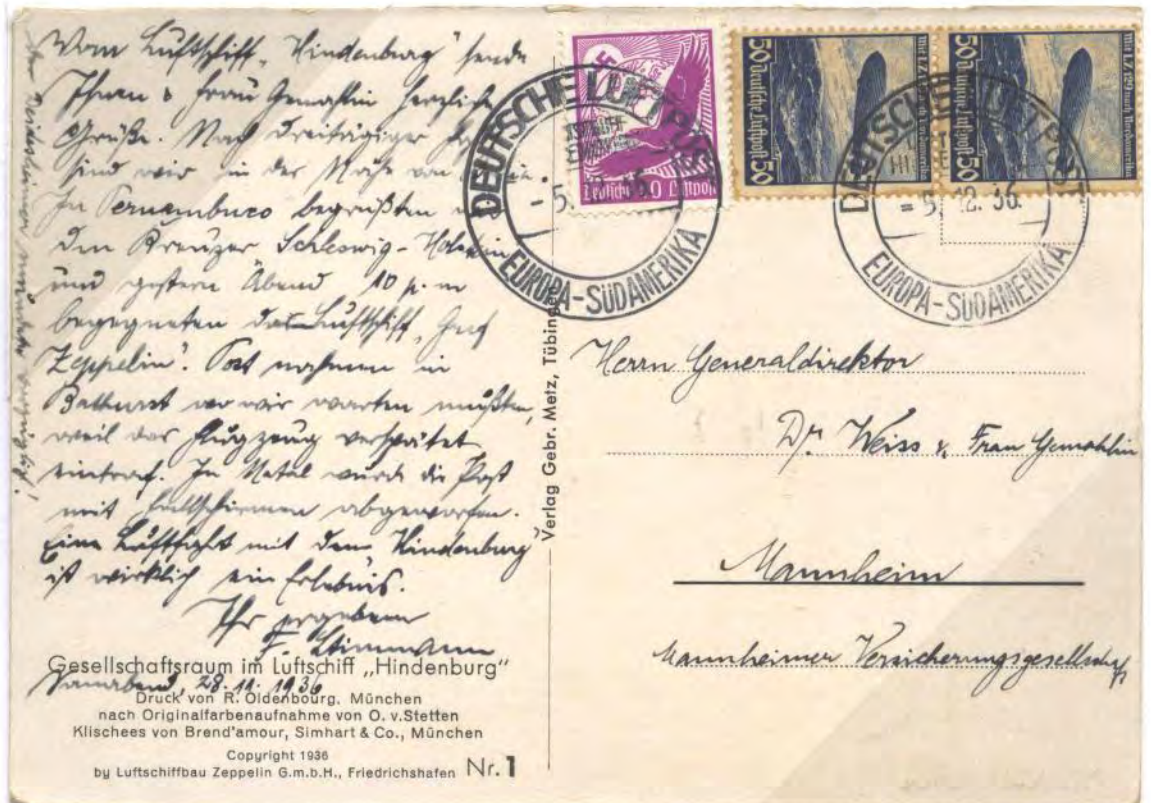 Vom Luftschiff „Hindenburg" sende
Ihnen & Frau Gemahlin herzliche
Grüße. Nach dreitägiger
sind wir in der Nähe von
In Pernambuco begrüßten
den Kreuzer Schleswig-Holstein
und gestern Abend 10 p. m
begegneten das Luftschiff „Graf
Zeppelin". Post nahmen in
Bathurst wo wir warten mußten,
weil das Flugzeug verspätet
eintraf. In Natal wurde die Post
mit Fallschirmen abgeworfen.
Eine Luftfahrt mit dem „Hindenburg"
ist wirklich ein Erlebnis.
Ihr ergebener
F.
Gesellschaftsraum im Luftschiff „Hindenburg"
28.11.1936
Druck von R. Oldenbourg, München
nach Originalfarbenaufnahme von O. v. Stetten
Klischees von Brend'amour, Simhart & Co., München
Copyright 1936
by Luftschiffbau Zeppelin G.m.b.H., Friedrichshafen Nr. 1
Verlag Gebr. Metz, Tübingen
DEUTSCHE LUFTPOST
- 5. 12. 36.
EUROPA-SÜDAMERIKA
Deutsche Luftpost
50 Deutsche Luftpost 50
Mit LZ 129 nach Nordamerika
50 Deutsche Luftpost 50
Mit LZ 129 nach Nordamerika
DEUTSCHE LUFTPOST
= 5. 12. 36.
EUROPA-SÜDAMERIKA
Herrn Generaldirektor
Dr. Weiss & Frau Gemahlin
Mannheim
Mannheimer Versicherungsgesellschaft